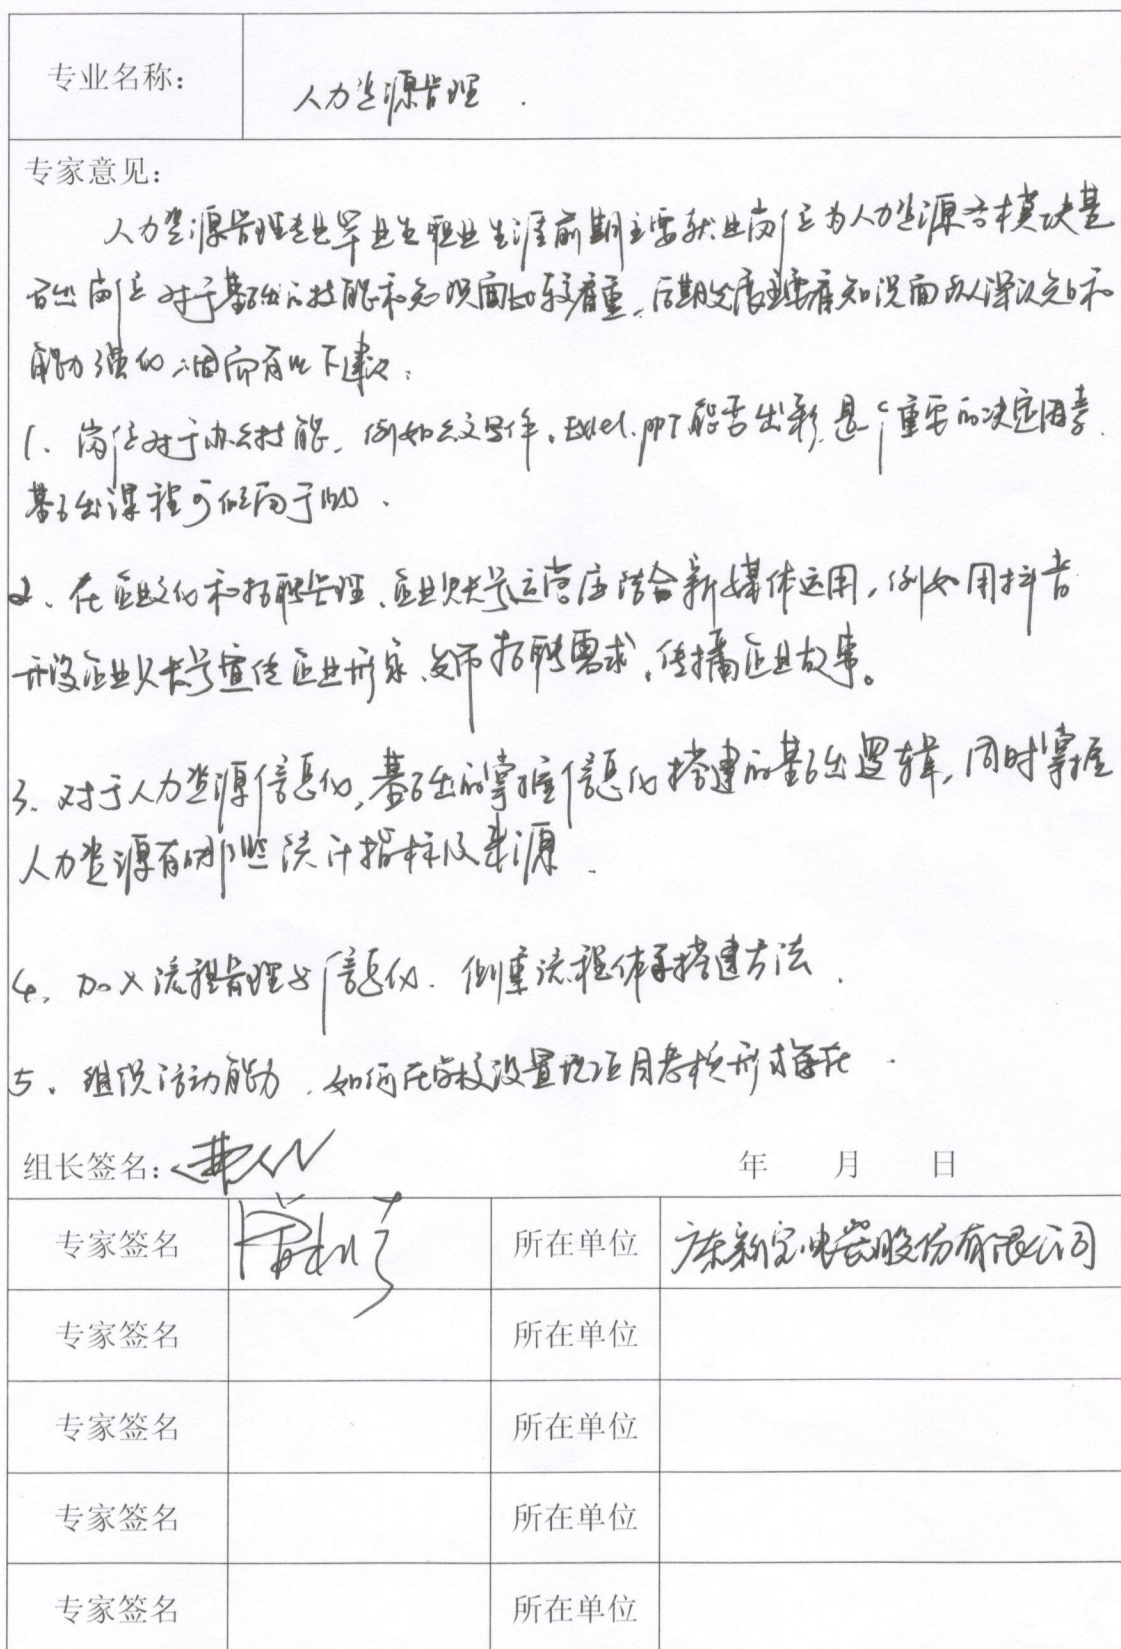 专业名称：
人力资源管理.
专家意见：
人力资源管理专业毕业生职业生涯前期主要就业岗位为人力资源各模块基
础岗位对于基础的技能和知识面比较看重，后期发展主要看知识面
能力强化，因而有以下建议：
1、岗位对于办公技能，例如公文写作，Excel、PPT能否出彩，是个重要的决定因素，
基础课程可倾向于此.
2、在企业文化和招聘管理、企业公众号运营应结合新媒体运用，例如用抖音
开设企业公众号宣传企业形象、发布招聘需求，传播企业故事。
3、对于人力资源信息化，基础的掌握信息化搭建的基础逻辑，同时掌握
人力资源有哪些统计指标及来源.
4、加入流程管理与信息化. 侧重流程体系搭建方法.
5、组织活动能力，如何在学校设置
组长签名：
年 月 日
专家签名 所在单位 广东新宝电器股份有限公司
专家签名 所在单位
专家签名 所在单位
专家签名 所在单位
专家签名 所在单位